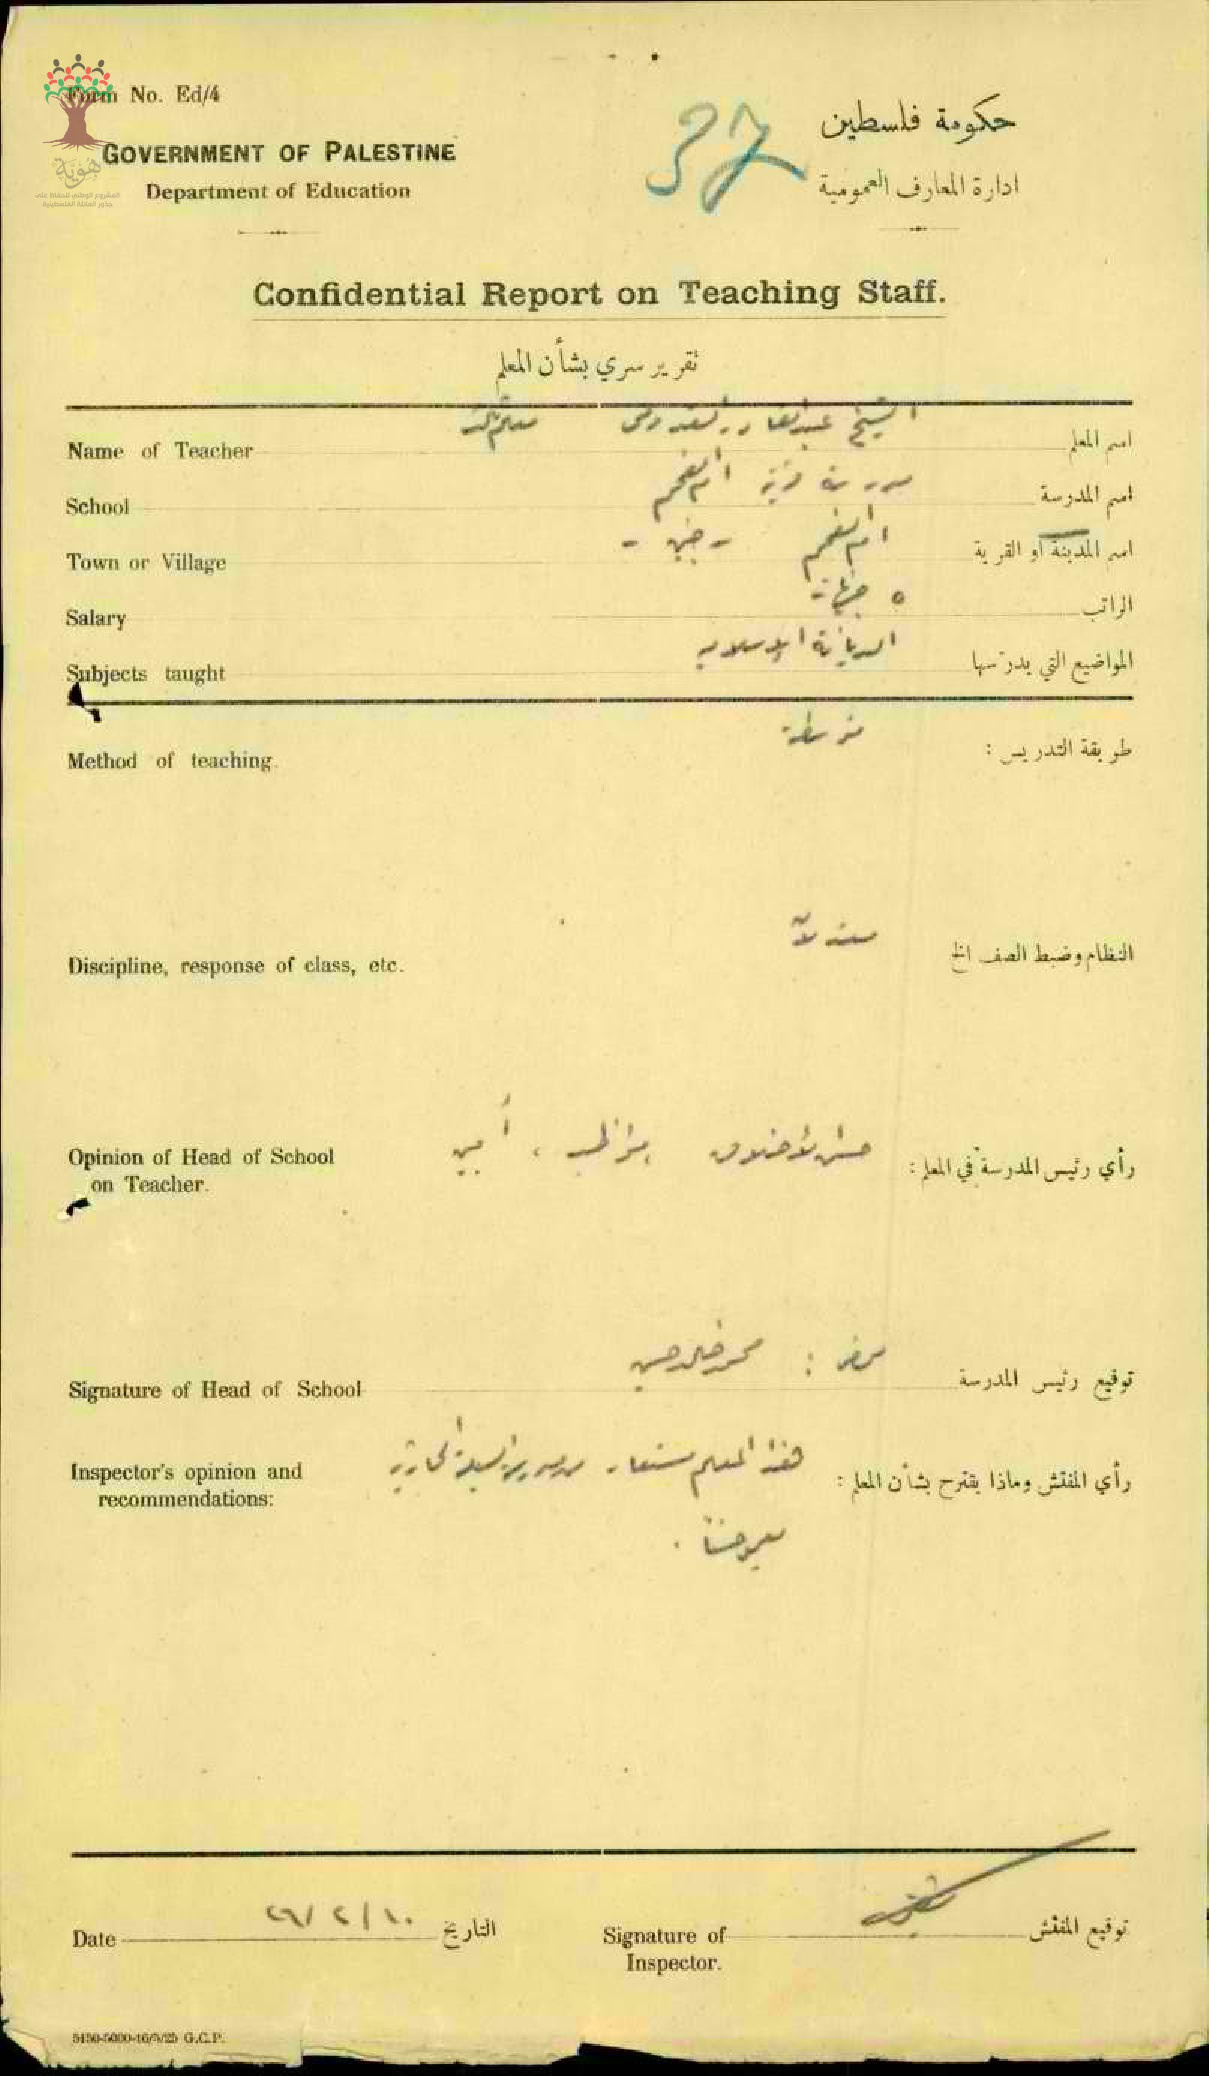 Form No. Ed/4
GOVERNMENT OF PALESTINE
Department of Education
حكومة فلسطين
ادارة المعارف العمومية
هوية
المشروع الوطني للحفاظ على
جذور العائلة الفلسطينية
Confidential Report on Teaching Staff.
تقرير سري بشأن المعلم
Name of Teacher الشيخ عبد القادر اسم المعلم
School مدرسة قرية ام الفحم اسم المدرسة
Town or Village ام الفحم - جنين - اسم المدينة او القرية
Salary ٥ جنيهات الراتب
Subjects taught الديانة الاسلامية المواضيع التي يدرسها
Method of teaching. متوسطة طريقة التدريس :
Discipline, response of class, etc. النظام وضبط الصف الخ
Opinion of Head of School حسن الاخلاق ، أمين رأي رئيس المدرسة في المعلم :
on Teacher.
Signature of Head of School محمد توقيع رئيس المدرسة
Inspector's opinion and هذا المعلم مستعار رأي المفتش وماذا يقترح بشأن المعلم :
recommendations:
Date ١٠/٢/٢٦ التاريخ
Signature of توقيع المفتش
Inspector.
5150-5000-16/5/25 G.C.P.